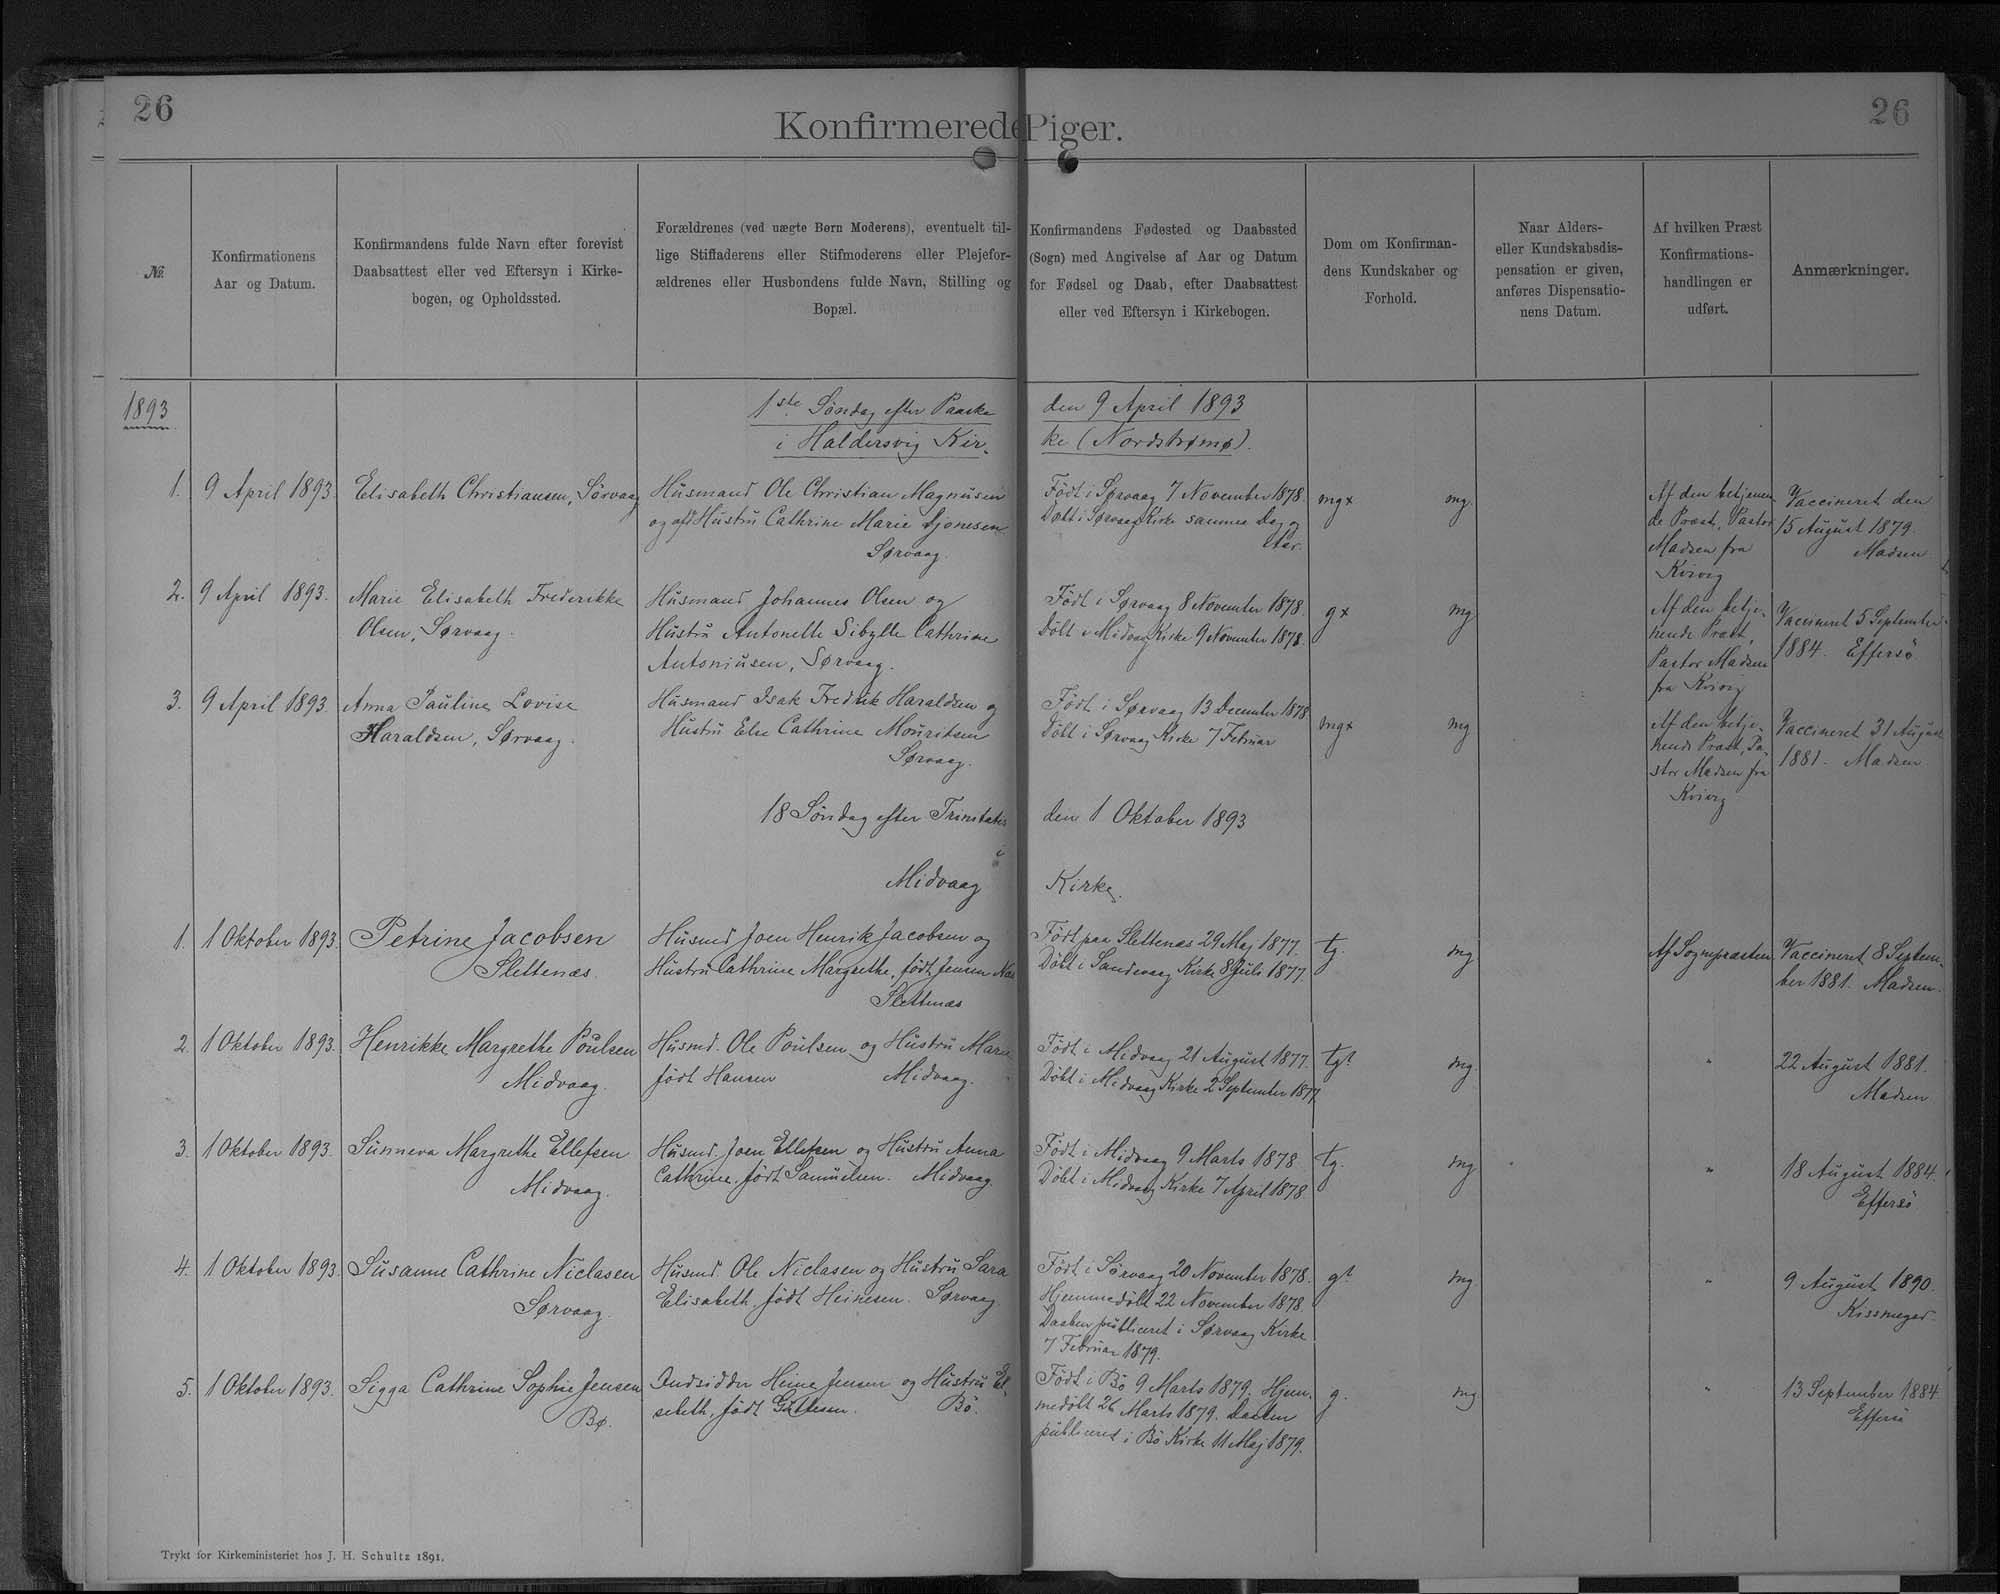 26
26
Konfirmerede Piger.
№
Konfirmationens
Aar og Datum.
Konfirmandens fulde Navn efter forevist
Daabsattest eller ved Eftersyn i Kirke-
bogen, og Opholdssted.
Forældrenes (ved uægte Børn Moderens), eventuelt til-
lige Stiffaderens eller Stifmoderens eller Plejefor-
ældrenes eller Husbondens fulde Navn, Stilling og
Bopæl.
Konfirmandens Fødested og Daabssted
(Sogn) med Angivelse af Aar og Datum
for Fødsel og Daab, efter Daabsattest
eller ved Eftersyn i Kirkebogen.
Dom om Konfirman-
dens Kundskaber og
Forhold.
Naar Alders-
eller Kundskabsdis-
pensation er given,
anføres Dispensatio-
nens Datum.
Af hvilken Præst
Konfirmations-
handlingen er
udført.
Anmærkninger.
1893
1ste Söndag efter Paaske den 9 April 1893
i Haldersvig Kir- ke (Nordstrømø).
1.
9 April 1893.
Elisabeth Christiansen, Sörvaag
Husmand Ole Christian Magnusen
og Hustru Cathrine Marie
Sørvaag.
Födt i Sørvaag 7 November 1878.
Döbt i Sørvaag Kirke samme Dag og
Aar.
mg×
mg.
Af den betjenen-
de Præst, Pastor
Madsen fra
Kvivig
Vaccineret den
15 August 1879.
Madsen
2.
9 April 1893.
Marie Elisabeth Frederikke
Olsen, Sørvaag.
Husmand Johannes Olsen og
Hustru Antonette Sibylle Cathrine
Antoniusen, Sørvaag.
Födt i Sørvaag 8 November 1878.
Döbt i Midvaag Kirke 9 November 1878.
g×
mg
Af den betje-
nende Præst,
Pastor Madsen
fra Kvivig
Vaccineret 5 September
1884. Effersö
3.
9 April 1893.
Anna Pauline Lovise
Haraldsen, Sørvaag.
Husmand Isak Fredrik Haraldsen og
Hustru Else Cathrine Mouritsen
Sørvaag.
Födt i Sørvaag 13 December 1878
Döbt i Sørvaag Kirke 7 Februar
mg×
mg
Af den betje-
nende Præst, Pa-
stor Madsen fra
Kvivig
Vaccineret 31 August
1881. Madsen
18 Söndag efter Trinitatis den 1 Oktober 1893
i
Midvaag Kirke.
1.
1 Oktober 1893.
Petrine Jacobsen
Slettenæs.
Husmd Joen Henrik Jacobsen og
Hustru Cathrine Margrethe, født Jensen
Slettenæs
Födt paa Slettenæs 29 Maj 1877.
Döbt i Sandevaag Kirke 8 Juli 1877.
tg.
mg
Af Sognepræsten
Vaccineret 8 Septem-
ber 1881. Madsen.
2.
1 Oktober 1893.
Henrikke Margrethe Poulsen
Midvaag.
Husmd. Ole Poulsen og Hustru Marie
født Hansen Midvaag.
Födt i Midvaag 21 August 1877.
Döbt i Midvaag Kirke 2 September 1877
tg?
mg
"
22 August 1881.
Madsen
3.
1 Oktober 1893.
Sunneva Margrethe Ellefsen
Midvaag.
Husmd. Joen Ellefsen og Hustru Anna
Cathrine, født Samuelsen. Midvaag.
Födt i Midvaag 9 Marts 1878
Döbt i Midvaag Kirke 7 April 1878.
tg.
mg
"
18 August 1884.
Effersö
4.
1 Oktober 1893.
Susanne Cathrine Niclasen
Sørvaag.
Husmd. Ole Niclasen og Hustru Sara
Elisabeth, født Heinesen. Sørvaag.
Födt i Sörvaag 20 November 1878.
Hjemmedöbt 22 November 1878
Daaben publiceret i Sørvaag Kirke
7 Februar 1879.
g?
mg
"
9 August 1890.
Kissmeyer.
5.
1 Oktober 1893.
Sigga Cathrine Sophie Jensen
Bø.
Indsidder Heine Jensen og Hustru El-
sebeth, født Guttesen. Bö.
Födt i Bö 9 Marts 1879. Hjem-
medöbt 26 Marts 1879. Daaben
publiceret i Bö Kirke 11 Maj 1879.
g.
mg
"
13 September 1884.
Effersö
Trykt for Kirkeministeriet hos J. H. Schultz 1891.